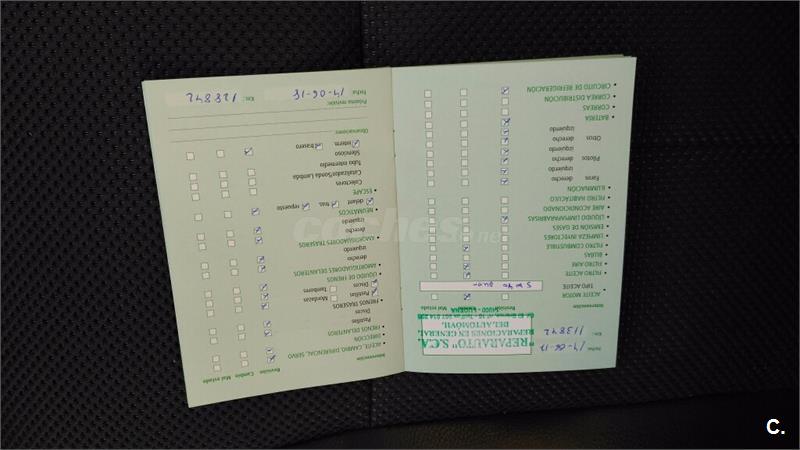 Fecha: 14-06-17
Km.: 113842
"REPARAUTO" S.C.A.
REPARACIONES EN GENERAL
DEL AUTOMÓVIL
14900 - LUCENA
Intervención Revisión Cambio Mal estado
• ACEITE MOTOR
TIPO ACEITE
• FILTRO ACEITE
• FILTRO AIRE
• BUJÍAS
• FILTRO COMBUSTIBLE
• LIMPIEZA INYECTORES
• EMISIÓN DE GASES
• LÍQUIDO LIMPIAPARABRISAS
• AIRE ACONDICIONADO
• FILTRO HABITÁCULO
• ILUMINACIÓN
Faros derecho
izquierdo
Pilotos derecho
izquierdo
Otros derecho
izquierdo
• BATERÍA
• CORREAS
• CORREA DISTRIBUCIÓN
• CIRCUITO DE REFRIGERACIÓN
Intervención Revisión Cambio Mal estado
• ACEITE, CAMBIO, DIFERENCIAL, SERVO
• DIRECCIÓN
• FRENOS DELANTEROS
Pastillas
Discos
• FRENOS TRASEROS
Pastillas Mordazas
Discos Tambores
• LÍQUIDO DE FRENOS
• AMORTIGUADORES DELANTEROS
derecho
izquierdo
• AMORTIGUADORES TRASEROS
derecho
izquierdo
• NEUMÁTICOS
delant. tras. repuesto
• ESCAPE
Colectores
Catalizador/Sonda Lambda
Tubo intermedio
Silencioso
interm. trasero
Observaciones:
Próxima revisión:
Fecha: 14-06-18 Km.: 128842
coches.net
C.